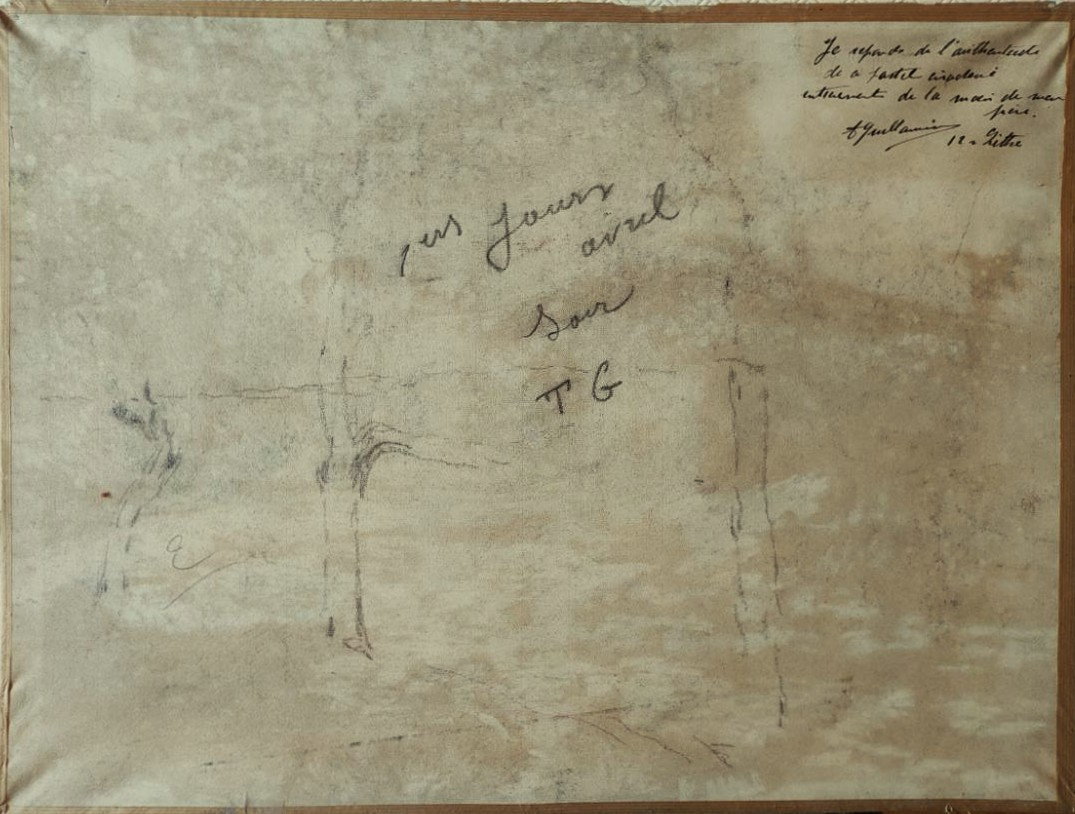 Je reponds de l'authenticité
de ce pastel
entièrement de la main de mon
père.
A Guillaumin
12
1ers jours
avril
Soir
T G
E